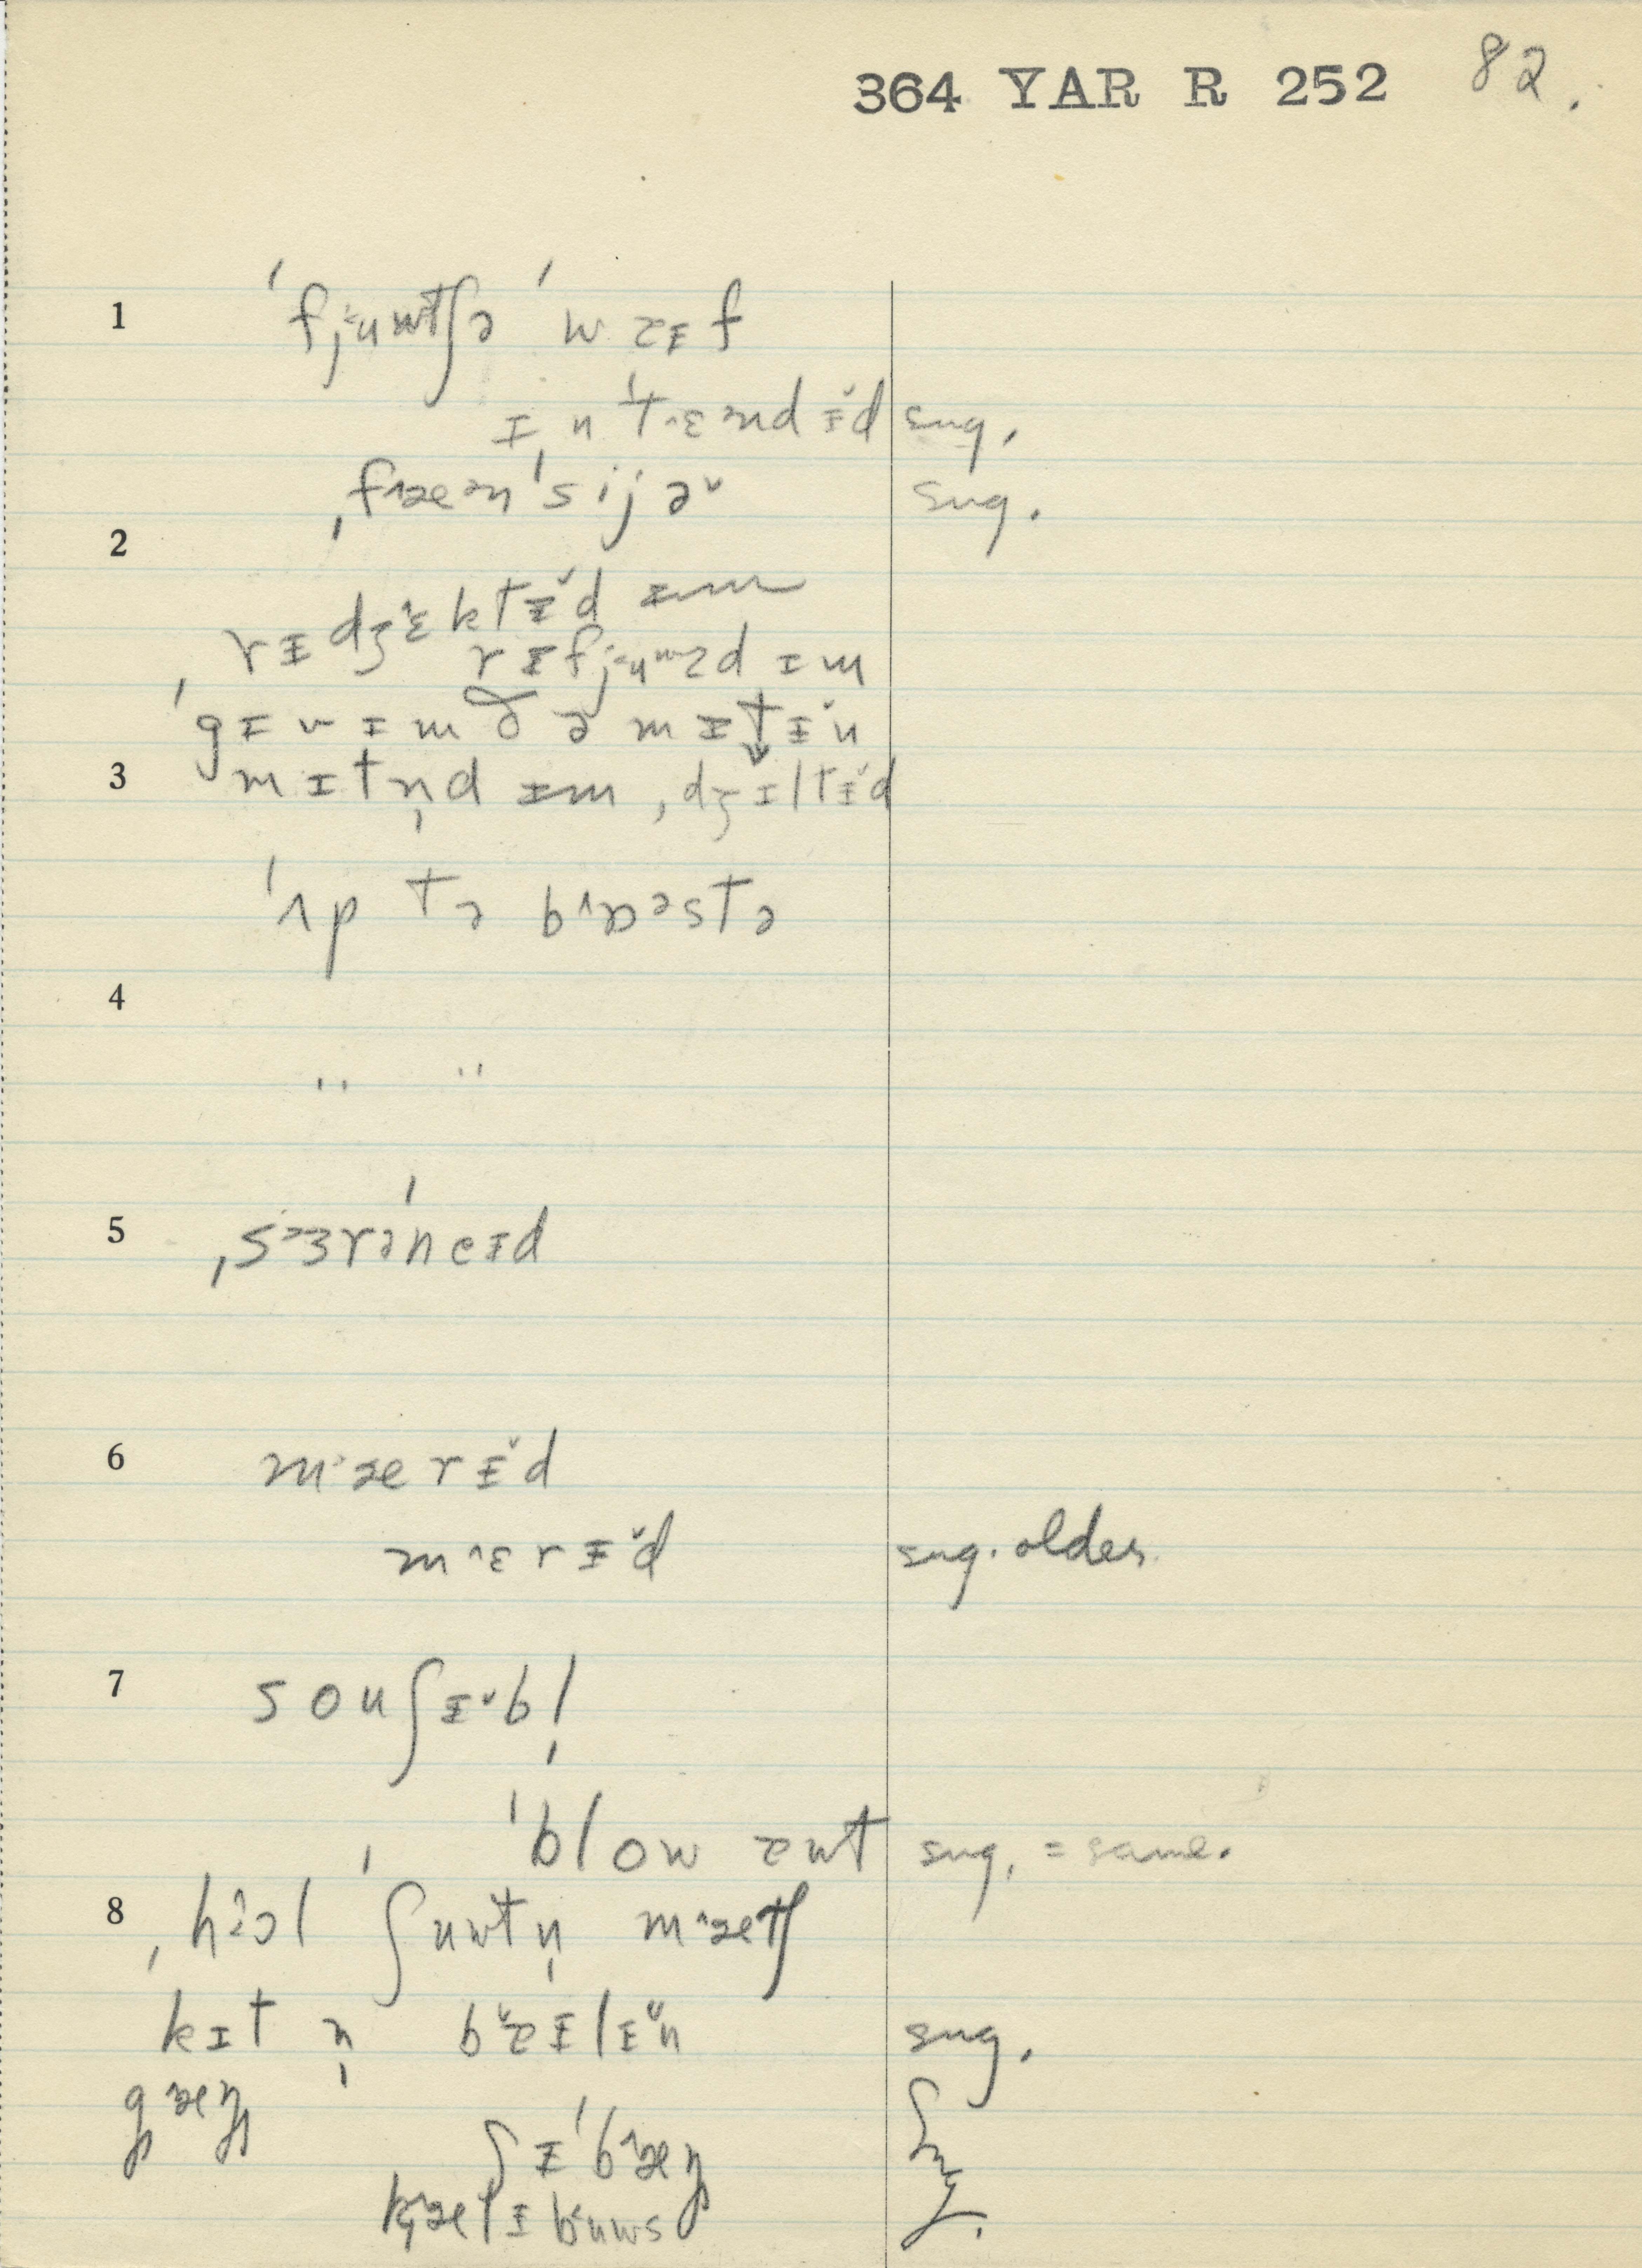 364 YAR R 252 82.
1 ˈfjᵾuwtʃə ˈwaɪf
ɪnˈtɛndɨ̆d sug.
ˌfɪæənˈsijə̆ sug.
2
rɨdʒɛktɨ̆d ɪm
rɨfjᵾuwzd ɪm
ˈgɪv ɪm ðə mɪtɨ̆n
3 mɪtn̩d ɪm, dʒɪltɨ̆d
ˈʌp tə brɒəstə
4
" "
5 ˌsɜrəˈneɪd
6 mærɨ̆d
mɛrɨ̆d sug. older.
7 souʃɨ̆bl̩
ˈblow aut sug. = same.
8 ˌhɔl ˈʃuwtn̩ mætʃ
kɪt n̩ bɛɪlɨ̆n sug.
gæŋ
ʃɨˈbæŋ Sug.
kætɨbuws